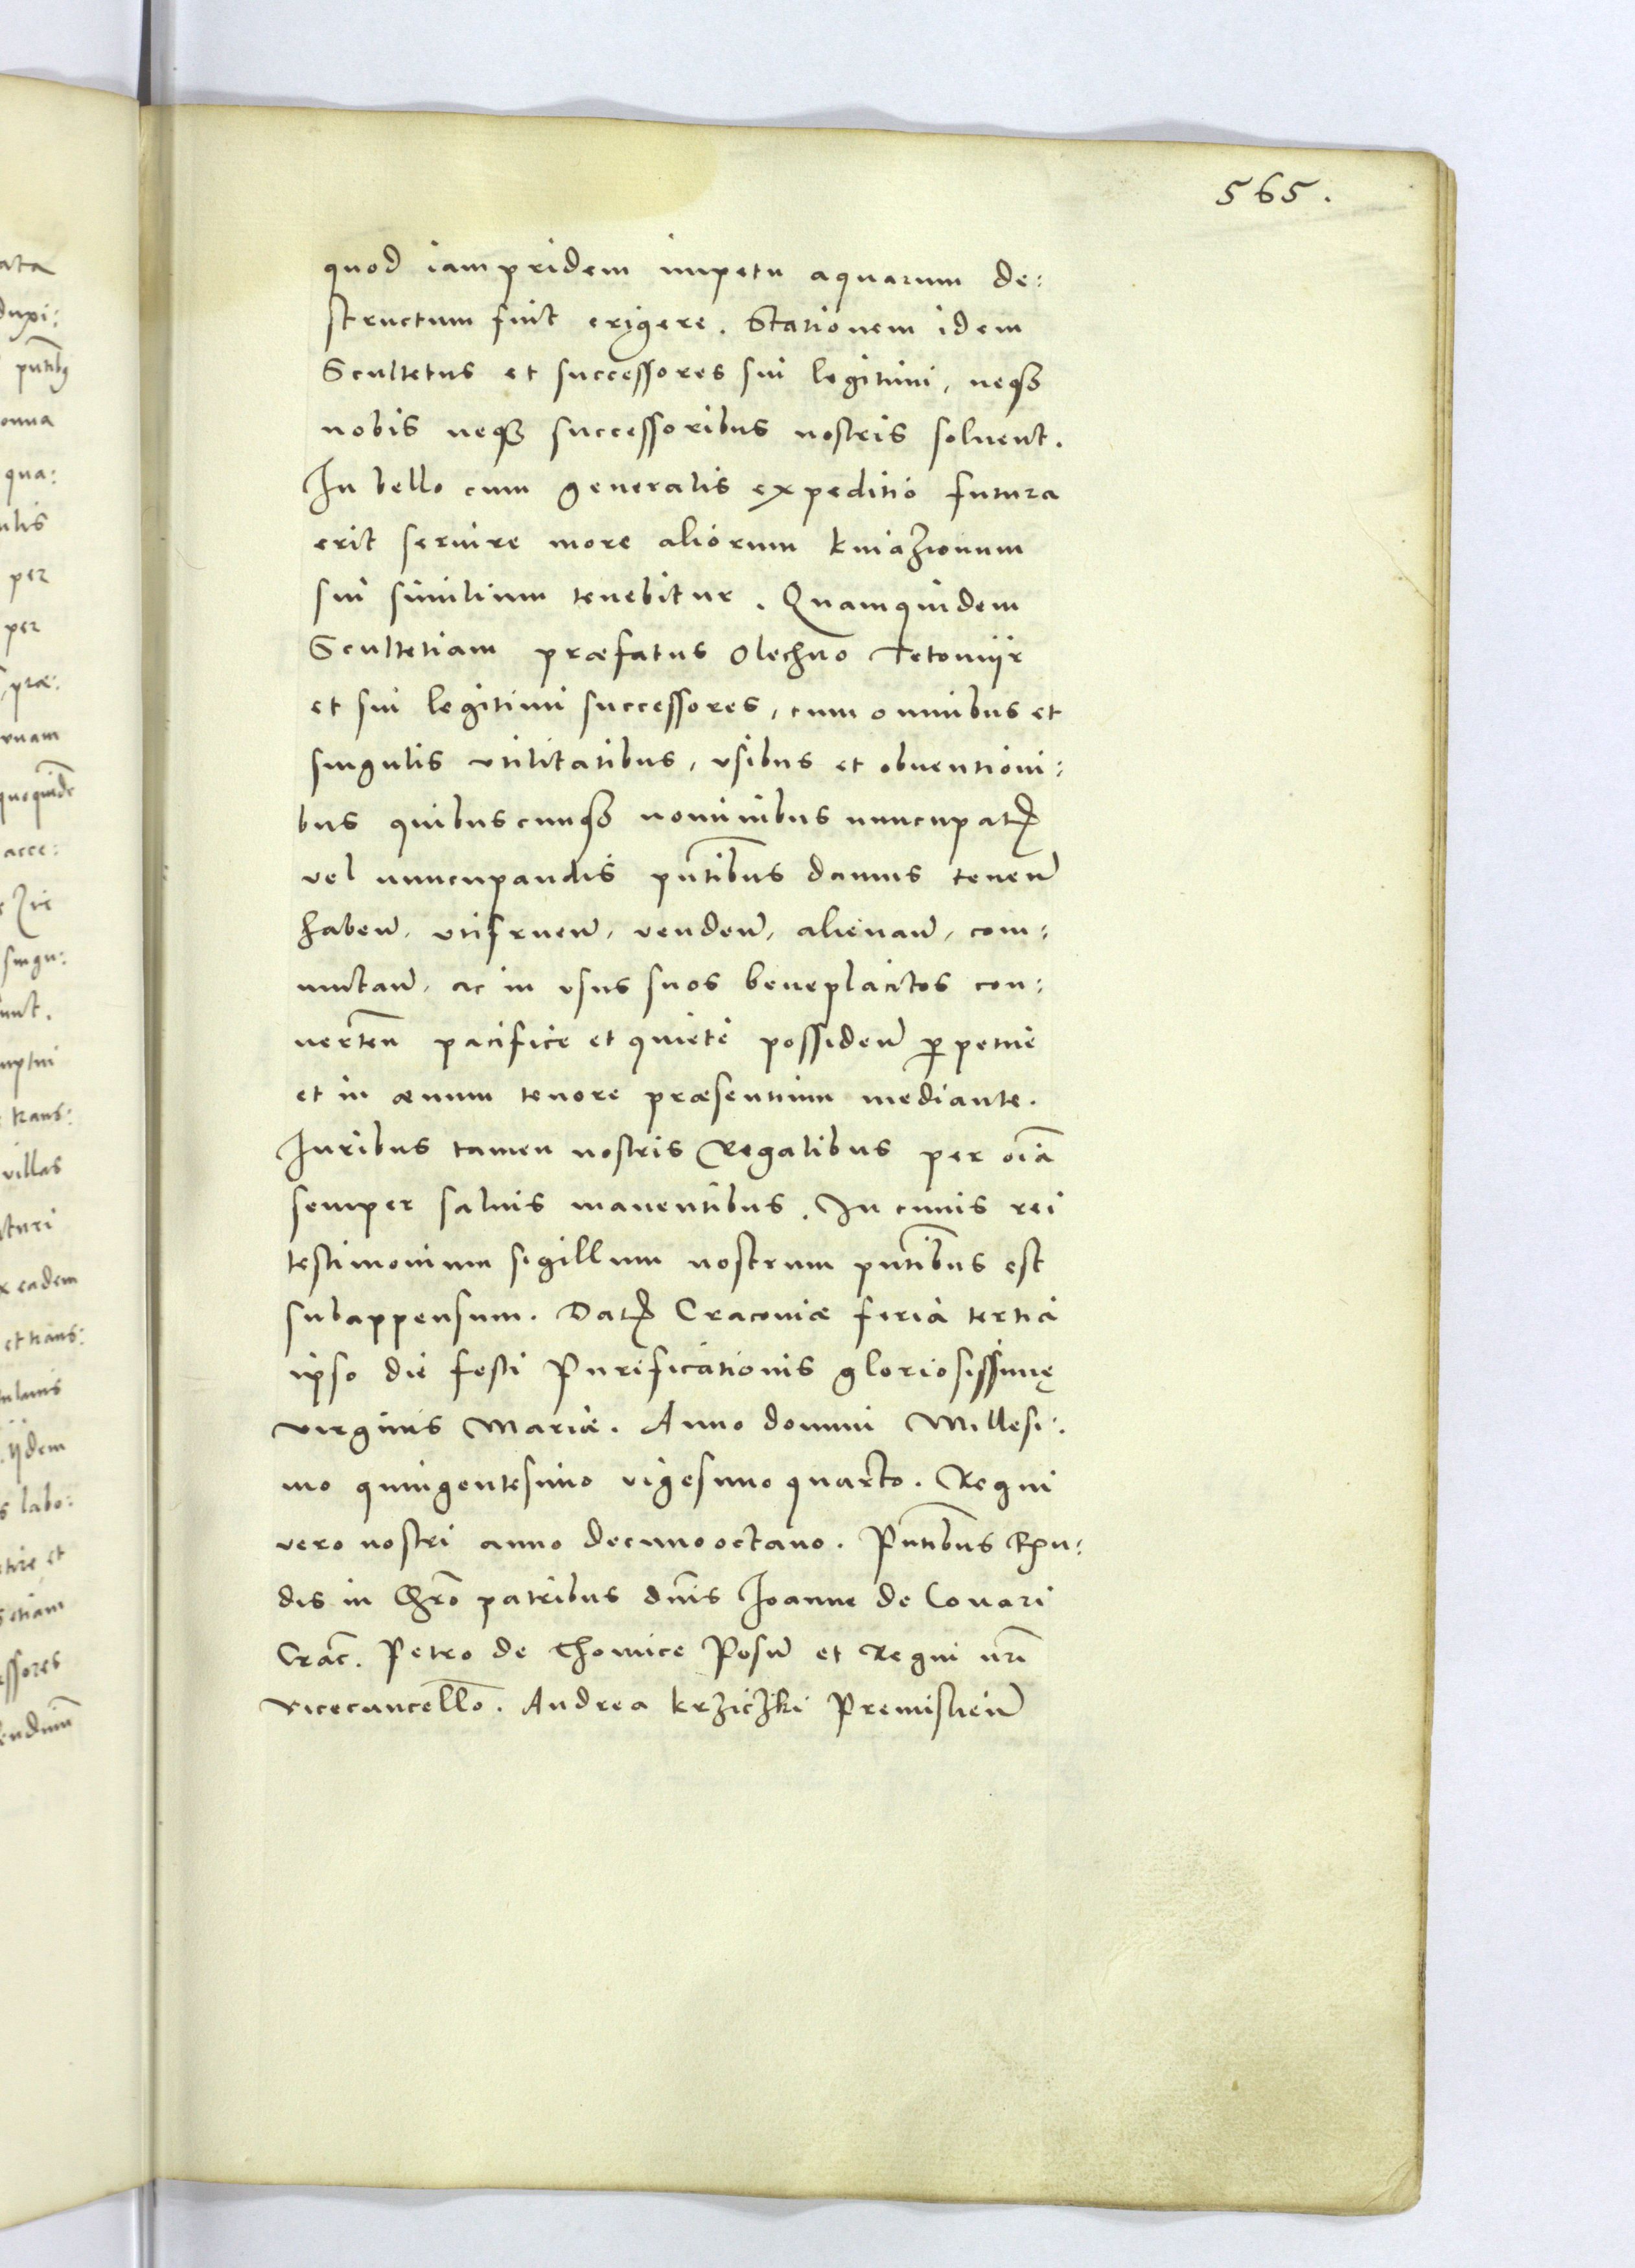 565.
quod iampridem impetu aquarum de:
structum fuit erigere. Stationem idem
Scultetus et successores sui legitimi, neqꝫ
nobis neqꝫ successoribus nostris soluent.
In bello cum generalis expeditio futura
erit seruire more aliorum kniaʒionum
sui similium tenebitur. Quamquidem
Scultetiam præfatus Olechno Tetomijr
et sui legitimi successores, cum omnibus et
singulis vtilitatibus, vsibus et obuentioni:
bus quibuscunqꝫ nominibus nuncupatꝭ
vel nuncupandis pñtibus damus teneñ
habeñ, vtifrueñ, vendeñ, alienañ, com:
mutañ, ac in vsus suos beneplacitos con:
uerteñ pacifice et quiete possideñ ꝑpetue
et in æuum tenore præsentium mediante.
Iuribus tamen nostris Regalibus per oĩa
semper saluis manentibus. In cuuis rei
testimonium sigillum nostrum pñtibus est
subappensum. Datꝭ Cracouiæ feria tertia
ipso die festi Purificationis gloriosissimę
virginis Mariæ. Anno domini Millesi:
mo quingentesimo vigesimo quarto. Regni
vero nostri anno decimooctauo. Pñtibus Rñ:
dis in Chr̃o patribus dñis Ioanne de Conari
Crac̃. Petro de Thomice Posñ et Regni nr̃i
vicecancell̃o. Andrea krziczki Premislieñ
ata
duxi:
pñtibꝫ
onua
qua:
ulis
per
per
præ:
quoquidẽ
acce:
singu:
unt.
trans:
villas
cturi
eadem
et trans:
ijdem
labo:
et
etiam
essores